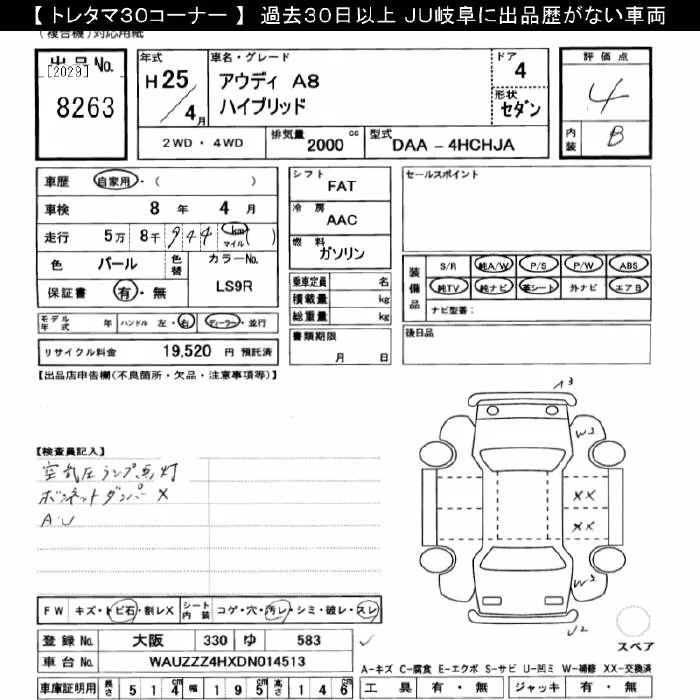 【 トレタマ30コーナー 】 過去30日以上 JU岐阜に出品歴がない車両
(複合機)対応用紙
出品No.
[2029]
8263
年式
H 25 / 4 月
車名・グレード
アウディ A8
ハイブリッド
ドア
4
形状
セダン
評価点
4
内装
B
2WD ・ 4WD
排気量 2000 cc
型式 DAA - 4HCHJA
車歴 自家用・( )
車検 8 年 4 月
走行 5万 8千 9 4 4 km マイル ( )
色 パール 色替
カラーNo.
LS9R
保証書 有・無
シフト
FAT
冷房
AAC
燃料
ガソリン
乗車定員 名
積載量 kg
総重量 kg
書類期限
月 日
セールスポイント
装備品
S/R 純A/W P/S P/W ABS
純TV 純ナビ 革シート 外ナビ エアB
ナビ型番:
後日品
モデル年式 年 ハンドル 左・右 ディーラー・並行
リサイクル料金 19,520 円 預託済
【出品店申告欄(不良箇所・欠品・注意事項等)】
【検査員記入】
空気圧ランプ点灯
ボンネットダンパーX
A・U
A3
W3
XX
XX
W3
U2
スペア
FW キズ・トビ石・割レX
シート内装 コゲ・穴・汚レ・シミ・破レ・スレ
登録No. 大阪 330 ゆ 583
車台No. WAUZZZ4HXDN014513
車庫証明用 長さ 514 cm 幅 195 cm 高さ 146 cm
A-キズ C-腐食 E-エクボ S-サビ U-凹ミ W-補修 XX-交換済
工具 有・無 ジャッキ 有・無